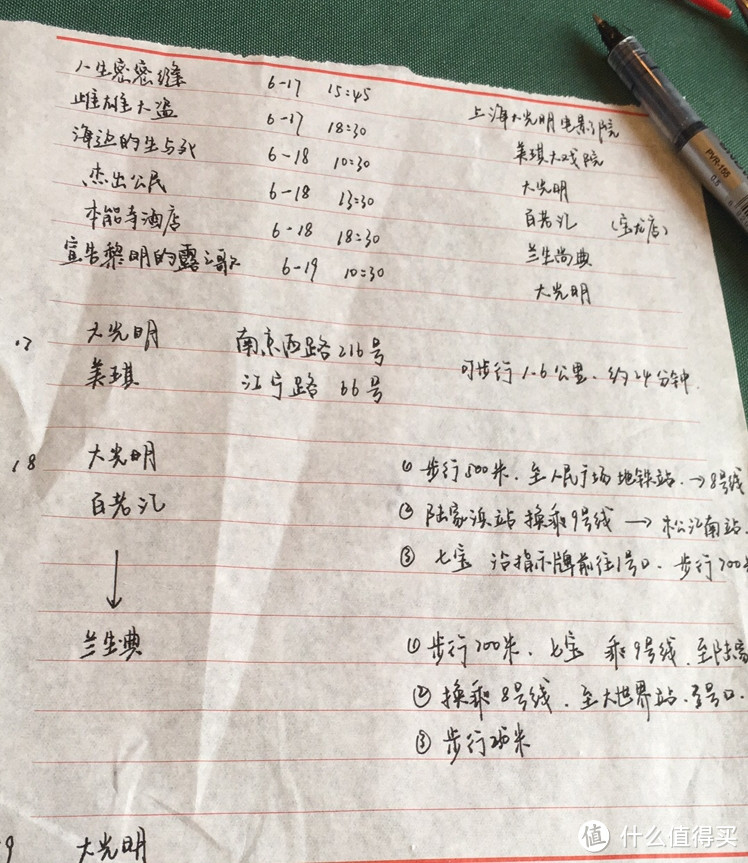 人生密密缝 6-17 15:45 上海大光明电影院
雌雄大盗 6-17 18:30 美琪大戏院
海边的生与死 6-18 10:30 大光明
杰出公民 6-18 13:30 百老汇 (宝龙店)
本能寺酒店 6-18 18:30 兰生尚典
宣告黎明的露之歌 6-19 10:30 大光明
17 大光明 南京西路216号
美琪 江宁路66号 可步行1.6公里.约24分钟.
18 大光明 ① 步行500米.至人民广场地铁站.→8号线
百老汇 ② 陆家浜站换乘9号线→松江南站.
③ 七宝 沿指示牌前往1号口.步行700
↓
兰生典 ① 步行700米.七宝 乘9号线.至陆家
② 换乘8号线.至大世界站.3号口.
③ 步行 米
9 大光明
PVR-155
0.5
值 什么值得买